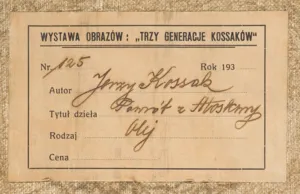 WYSTAWA OBRAZÓW: „TRZY GENERACJE KOSSAKÓW“
Nr. 125 Rok 193
Autor Jerzy Kossak
Tytuł dzieła Powrót z Moskwy
Rodzaj Olej
Cena